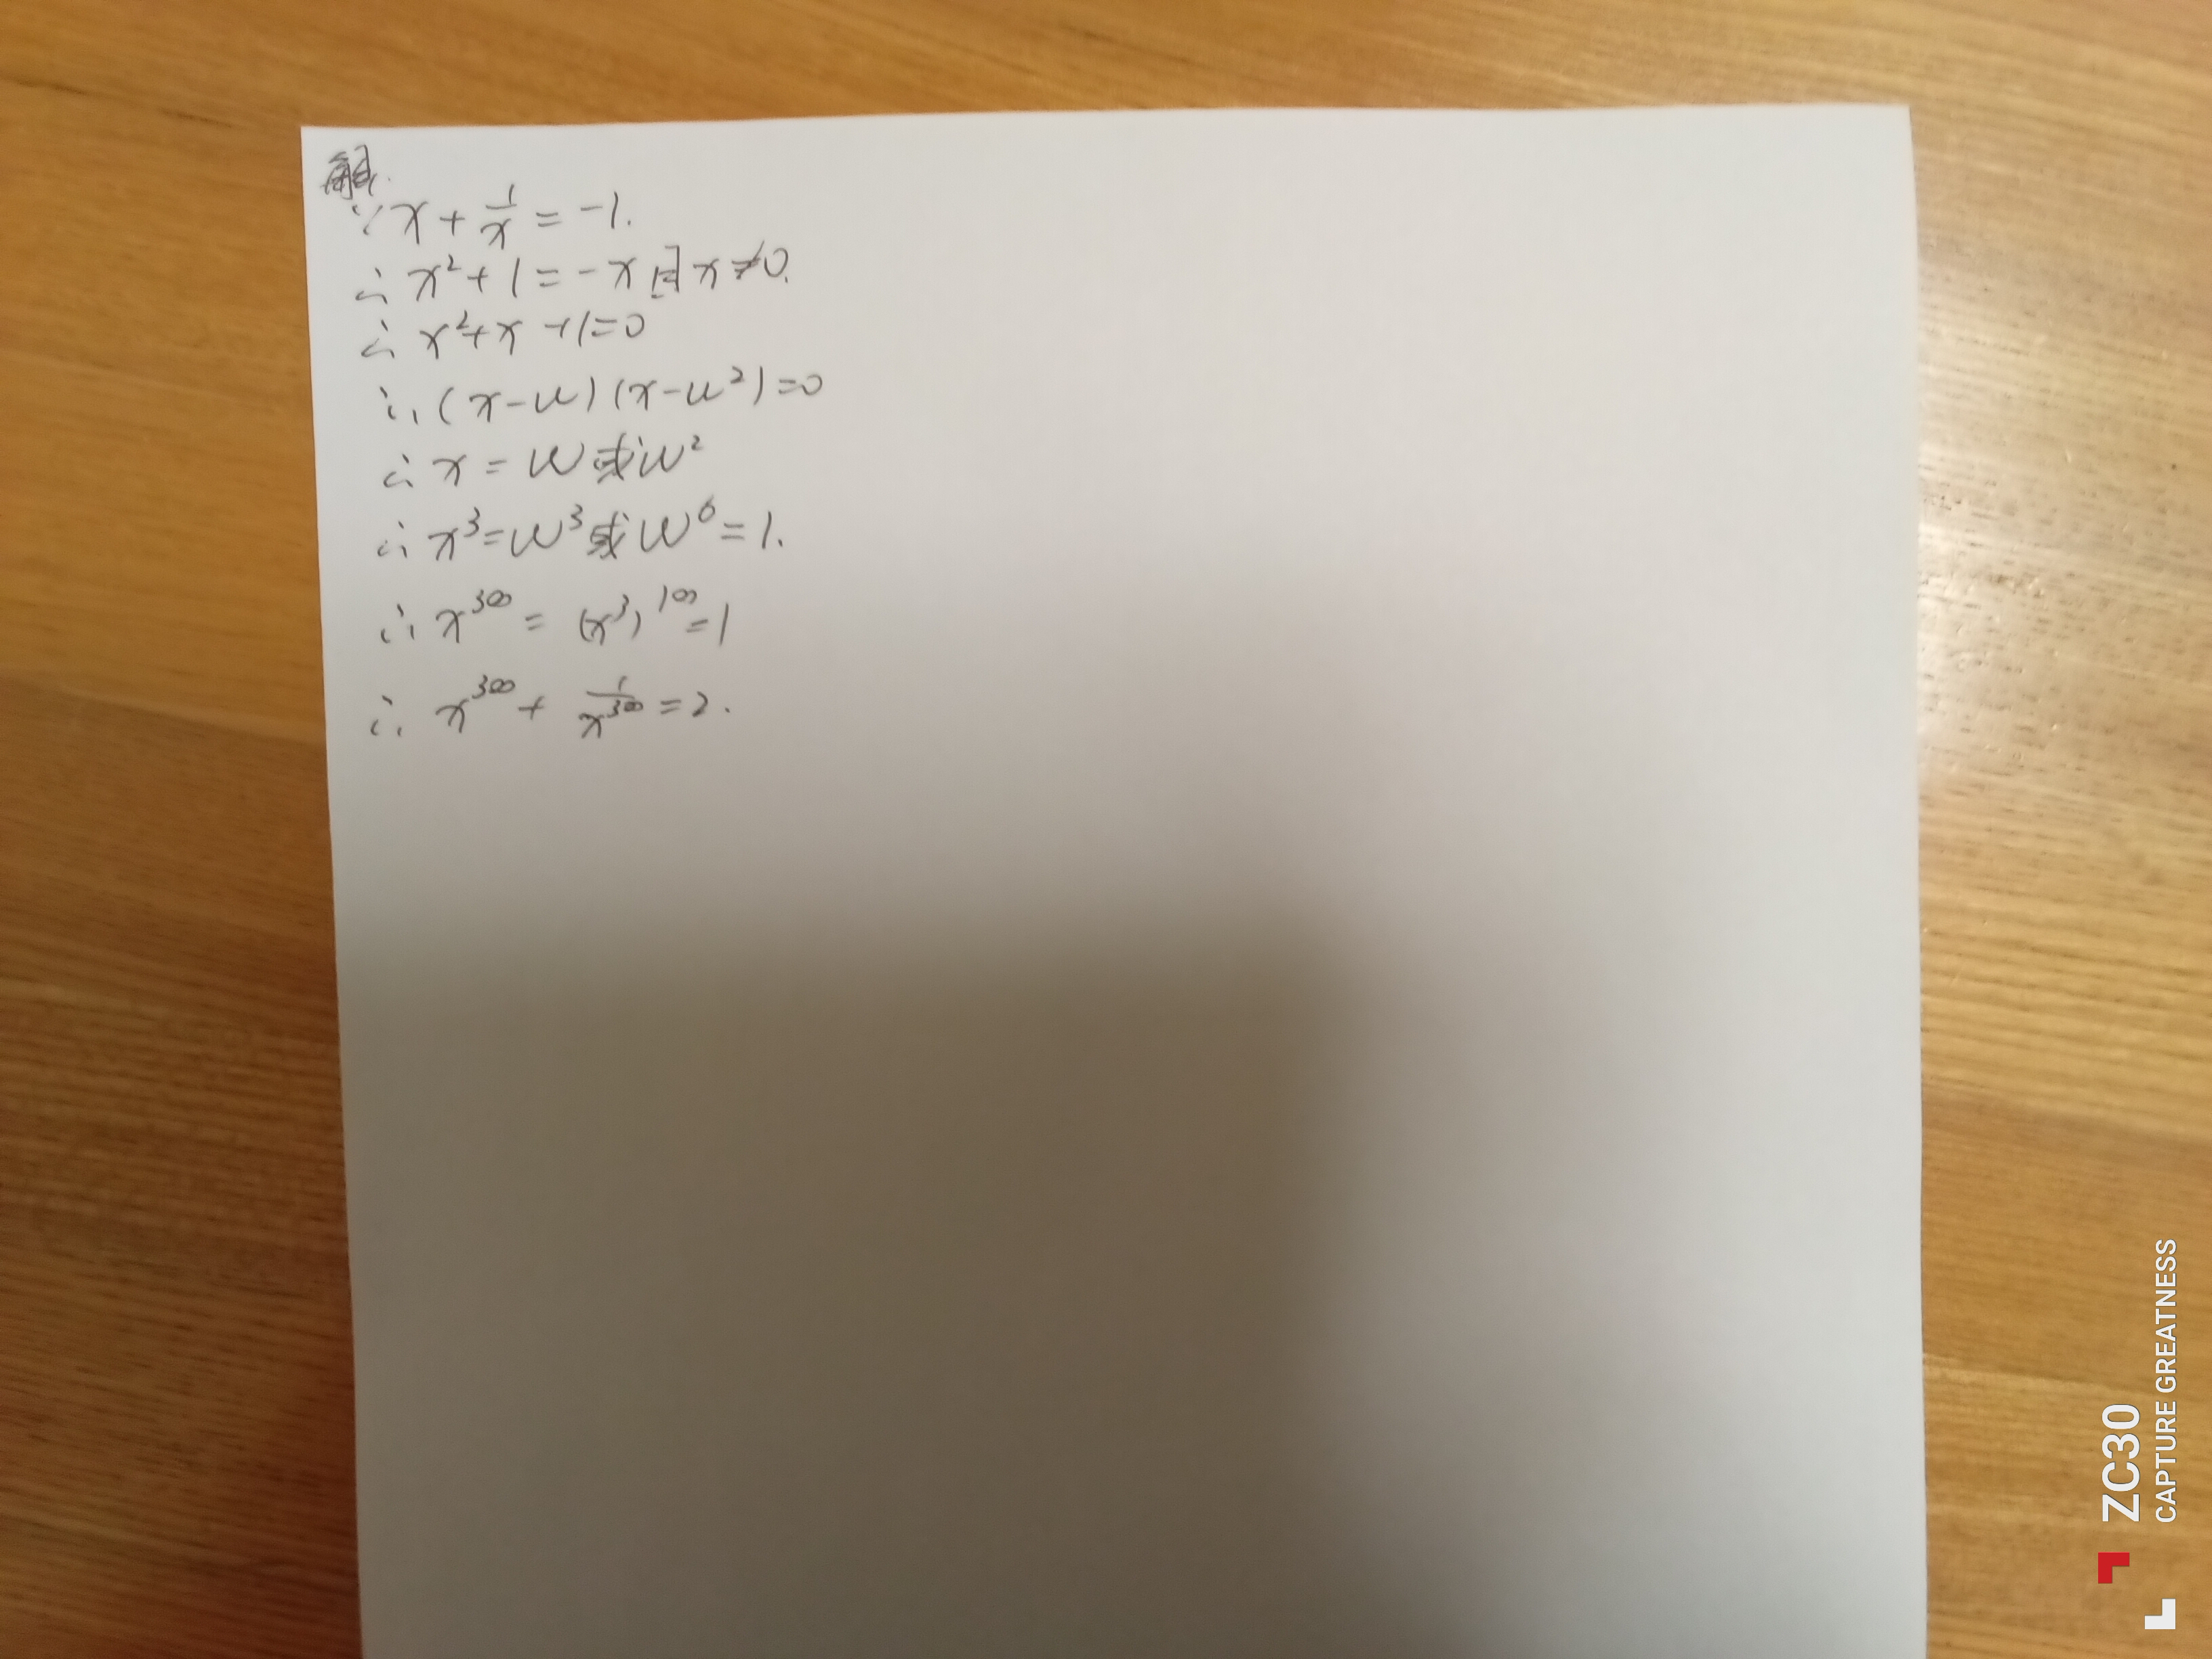 解.
∵ x + 1/x = -1.
∴ x² + 1 = -x 且 x ≠ 0.
∴ x² + x + 1 = 0
∴ (x - w) (x - w²) = 0
∴ x = w 或 w²
∴ x³ = w³ 或 w⁶ = 1.
∴ x³⁰⁰ = (x³)¹⁰⁰ = 1
∴ x³⁰⁰ + 1/x³⁰⁰ = 2.
ZC30
CAPTURE GREATNESS